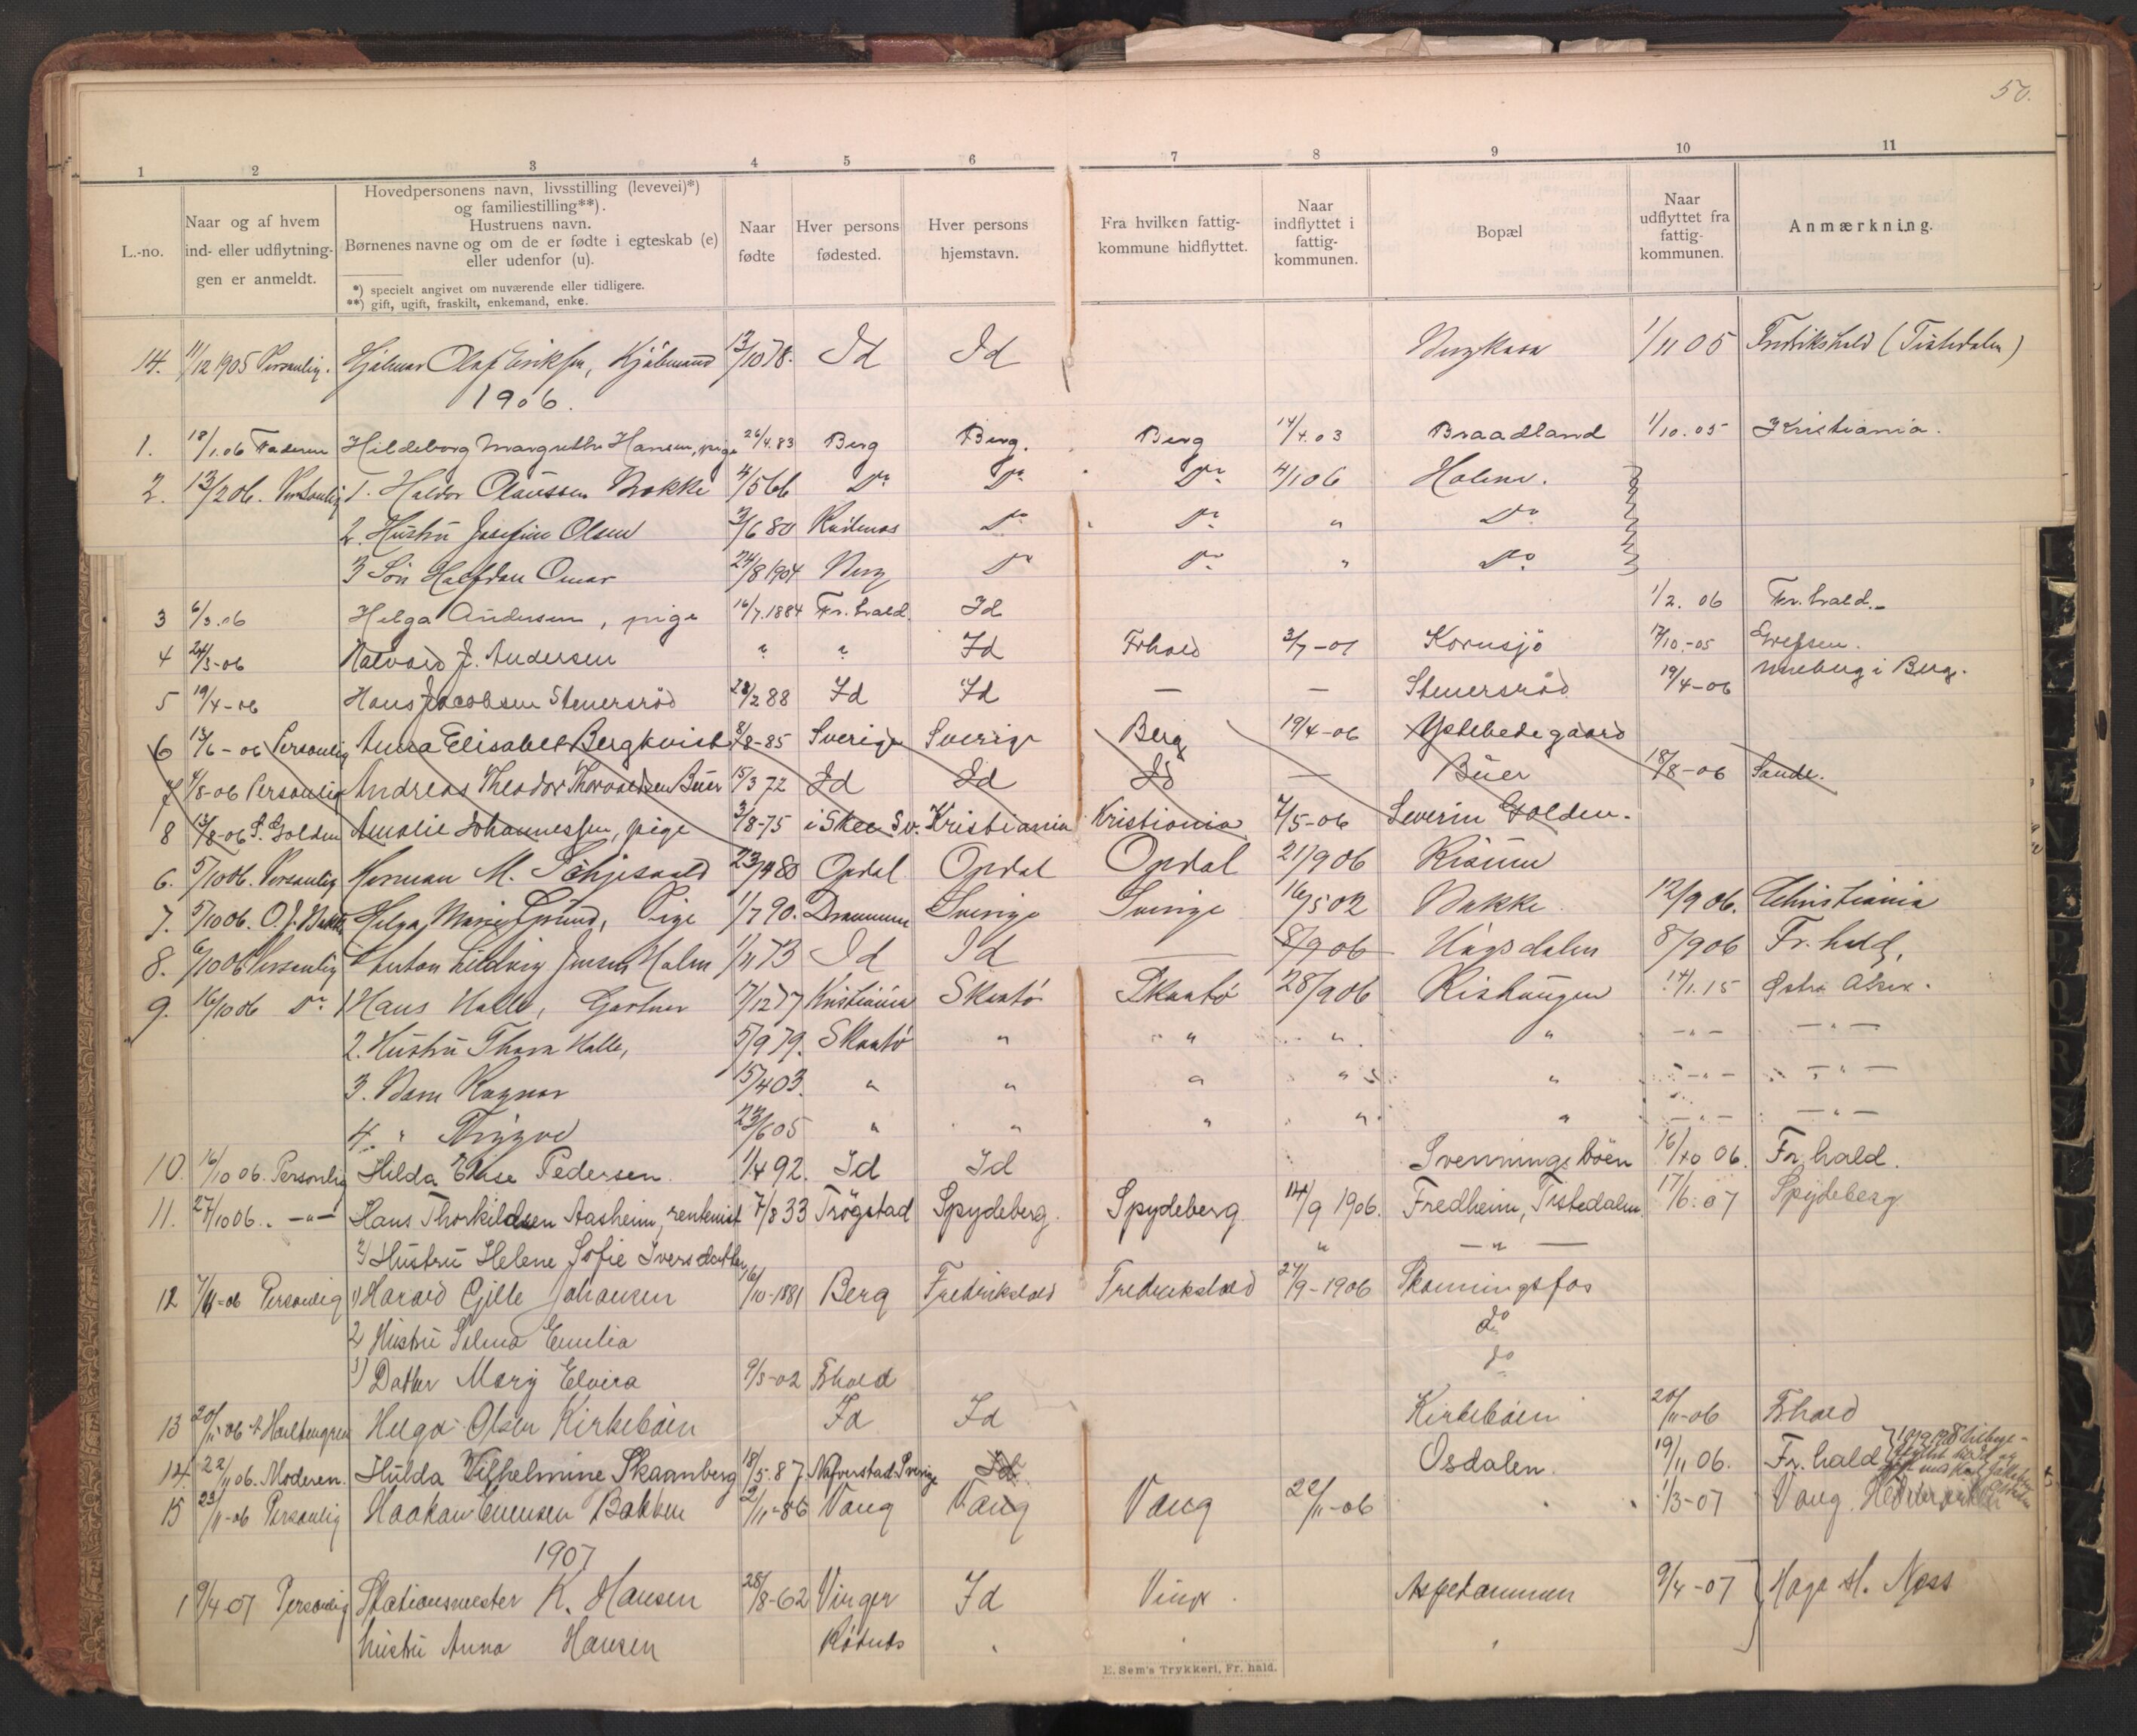 50.
1 2 3 4 5 6 7 8 9 10 11
L.-no.
Naar og af hvem
ind- eller udflytnin-
gen er anmeldt.
Hovedpersonens navn, livsstilling (levevei)*)
og familiestilling**).
Hustruens navn.
Børnenes navne og om de er fødte i egteskab (e)
eller udenfor (u).
*) specielt angivet om nuværende eller tidligere.
**) gift, ugift, fraskilt, enkemand, enke.
Naar
fødte
Hver persons
fødested.
Hver persons
hjemstavn.
Fra hvilken fattig-
kommune hidflyttet.
Naar
indflyttet i
fattig-
kommunen.
Bopæl
Naar
udflyttet fra
fattig-
kommunen.
Anmærkning.
14. 11/12 1905 Personlig. Hjalmar Olaf Eriksen, 13/10 78. Id Id 1/11 05 Fredrikshald (Tistedalen)
1906.
1. 18/1.06 Faderen Hildeborg Margrethe Hansen, pige 26/4.83 Berg Berg. Berg 14/4.03 Braadland 1/10.05 Kristiania.
2. 13/2 06. Personlig 1. Haldor Olaussen Brokke 4/5 66 Do Do Do 4/1 06 Holene.
2. Hustru Josefine Olsen 3/6 80 Do Do " Do
3 Søn Halfdan Omar 24/8 1904 Berg Do Do " Do
3 6/3.06 Helga Andersen, pige 16/7.1884 Fr.hald. Id 1/2. 06 Fr.hald.
4 24/3-06 Halvard J. Andersen ? ? Id Frhald 3/7-01 Kornsjö 17/10.-05 Grefsen.
5 19/4-06 Hans Jacobsen Stenersröd 28/2 88 Id Id — — Stenersröd 19/4-06 i Berg.
6 13/6-06 Personlig Anna Elisabet Bergkvist 8/8-85 Sverige Sverige Berg 19/4-06 Ystebødegaard
7 9/8-06 Personlig Andreas Theodor Thorvaldsen Buer 15/3 72 Id Id Id — Buer 18/8-06 Sande.
8 13/8-06 S. Golden Amalie Johannessen, pige 3/8-75 i Skee Sv. Kristiania Kristiania 7/5-06 Severin Golden.
6. 5/10 06. Personlig Herman M. 23/4 80 Opdal Opdal Opdal 21/9 06
7. 5/10 06. O. J. Bakke Helga Marie Pige 1/7 90. Drammen Sverige Sverige 16/5 02 Bakke 12/9 06. Christiania
8. 6/10 06 Personlig Anton Ludvig Jensen Holm 1/11 73 Id Id — 8/9 06 8/9 06 Fr.hald,
9. 16/10 06 Do 1 Hans Halle, Gartner 17/12 77 Kristiania Skaatö Skaatö 28/9 06 Rishaugen 14/1.15
2. Hustru Thora Halle, 5/9 79. Skaatö " " " " -"- —"—
3. Barn Ragnar 15/4 03. " " " " " -"- —"—
4. " Trygve 23/6 05 " " " " " —"— —"—
10. 16/10 06. Personlig Hilda Elise Pedersen. 1/4 92. Id Id Svenningsböen 16/10 06. Fr.hald.
11. 27/10 06. —"— Hans Thorkildsen Aasheim, rentenist 7/8 33 Trögstad Spydeberg. Spydeberg 14/9 1906. Fredheim, Tistedalen. 17/6.07 Spydeberg
2) Hustru Helene Sofie Iversdatter " —"—
12 7/11-06 Personlig 1) Harald Gille Johansen 16/10-1881 Berg Fredrikshald Fredrikshald 24/9-1906 Skonningsfos
2 Hustru Selma Emilia do
1) Datter Mary Elvira 9/3-02 Fhald do
13 20/11-06 Helga Olsen Kirkeböen Id Id Kirkeböen 20/11-06 Fhald
14. 22/11 06. Moderen. Hulda Vilhelmine Skaanberg 18/5.87. Nafverstad Sverige Id Osdalen. 19/11 06. Fr.hald
15 23/11-06 Personlig Haakon Evensen Bakken 2/11-86 Vang Vang Vang 22/11-06 1/3-07 Vang. Hedemarken
1907
1 9/4-07 Personlig Stationsmester K. Hansen 28/8-62 Vinger Id Vinger Aspedammen 9/4-07 Haga st. Næss
hustru Anna Hansen
E. Sem's Trykkeri, Fr. hald.